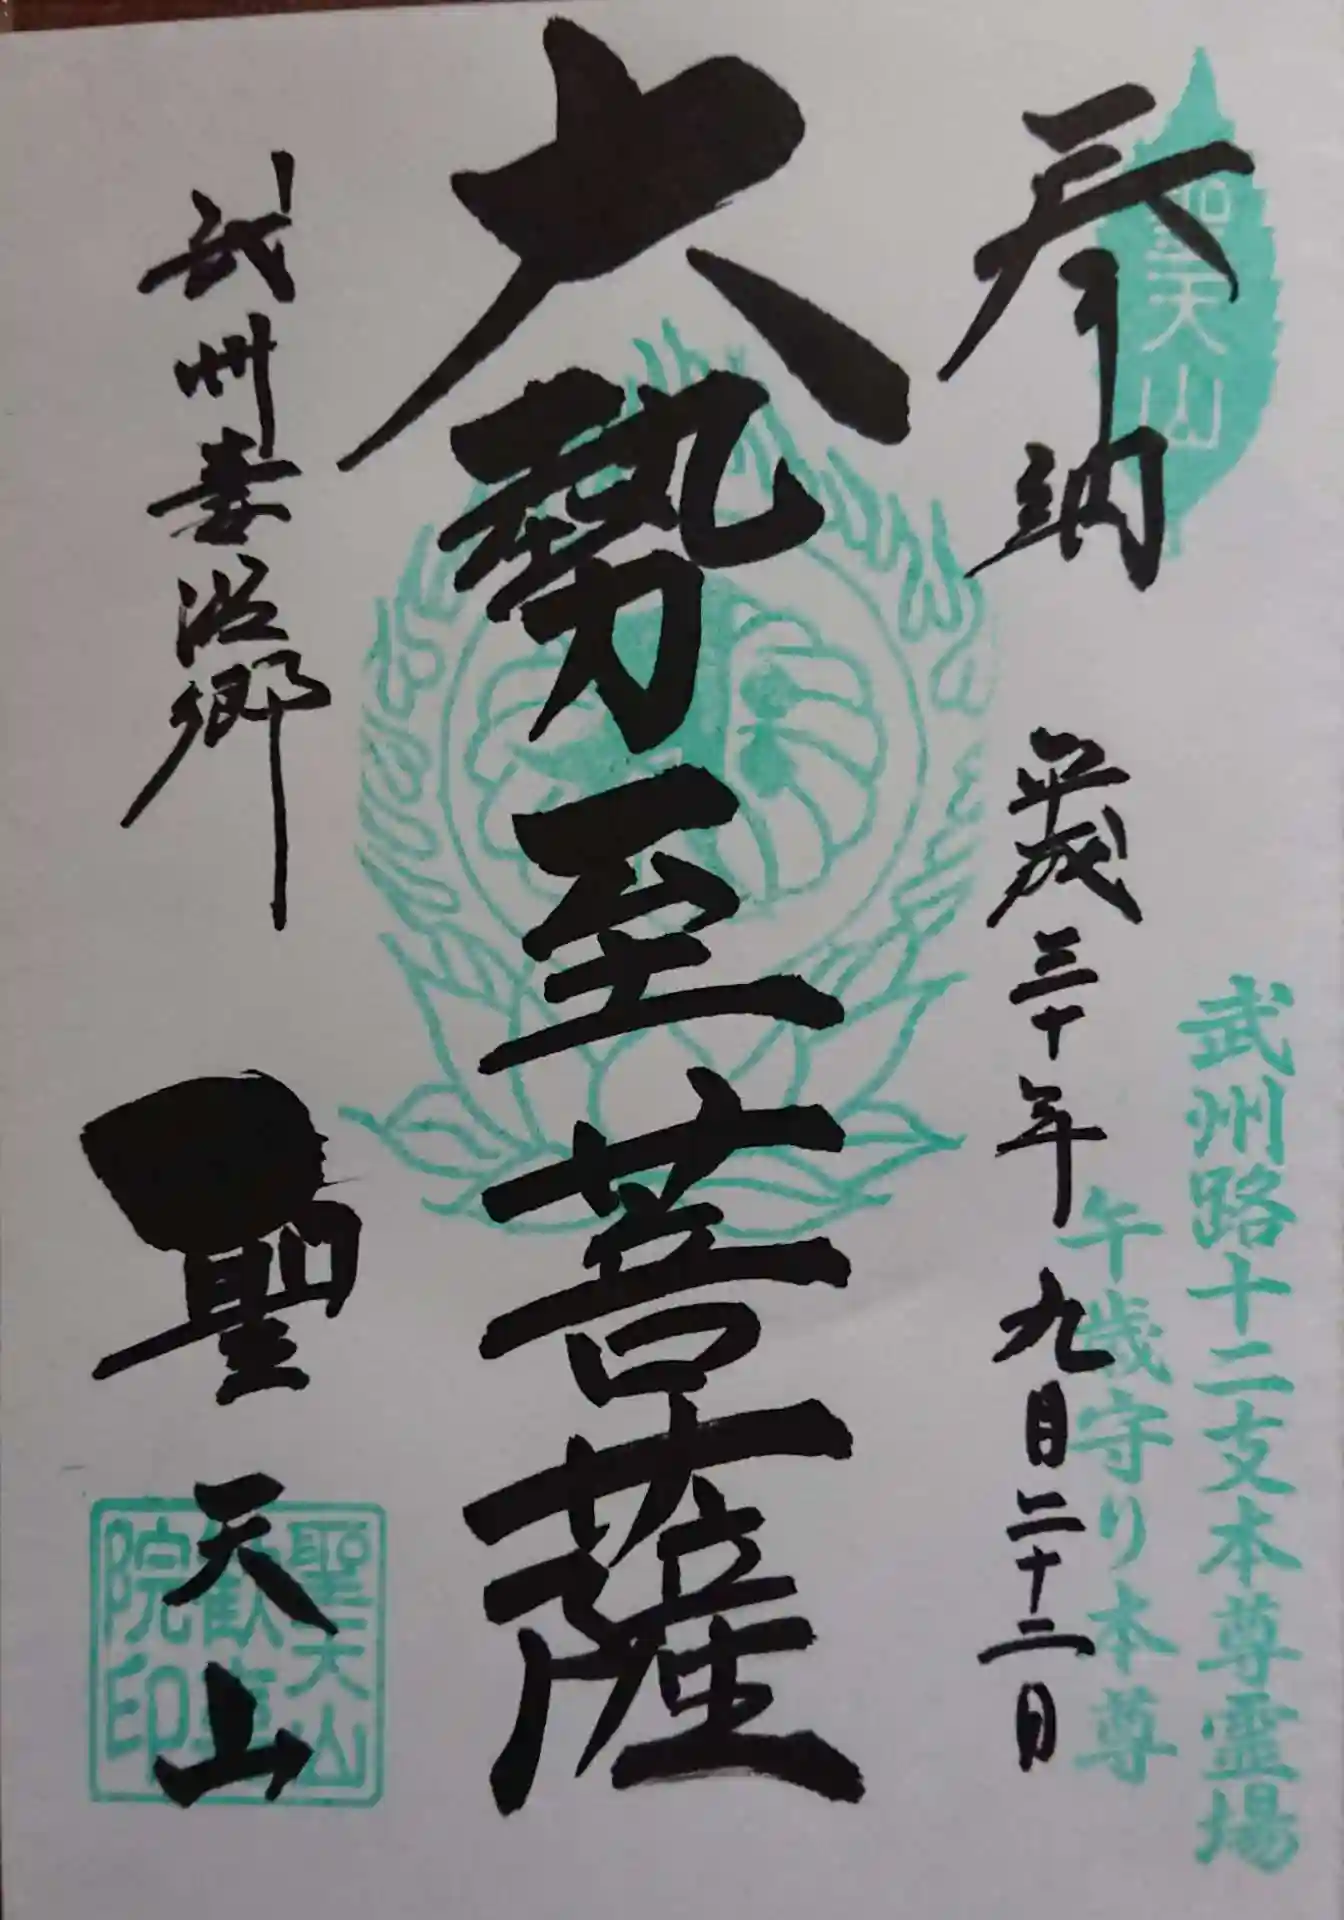 聖天山
武州路十二支本尊霊場
午歳守り本尊
奉納 平成三十年 九月二十二日
大勢至菩薩
武州妻沼郷 聖天山
聖天山
歓喜
院印